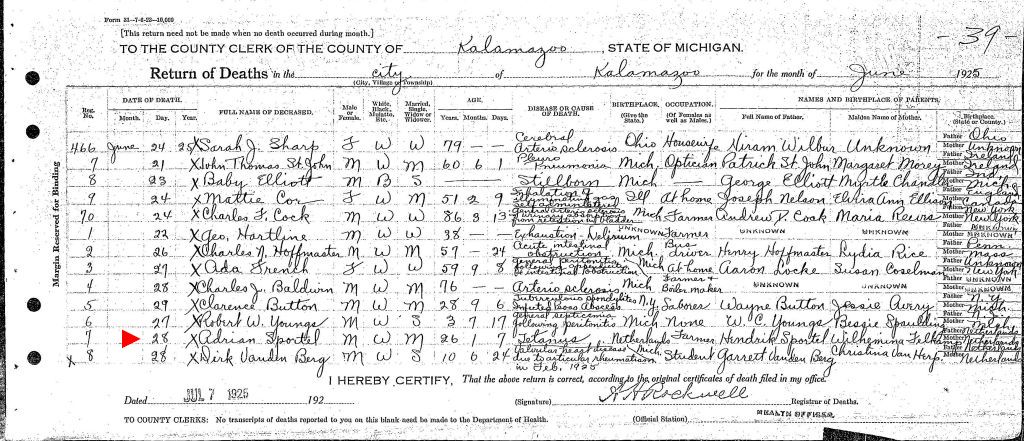 Form 31—7-6-23—10,000
[This return need not be made when no death occurred during month.]
TO THE COUNTY CLERK OF THE COUNTY OF Kalamazoo, STATE OF MICHIGAN. -39-
Return of Deaths in the city of Kalamazoo for the month of June 1925
(City, Village or Township)
Margin Reserved for Binding
Reg. No. DATE OF DEATH. Month. Day. Year. FULL NAME OF DECEASED. Male or Female. White, Black, Mulatto, Etc. Married, Single, Widow or Widower. AGE. Y. M. D. DISEASE OR CAUSE OF DEATH. BIRTHPLACE. (Give the State.) OCCUPATION. (Of Females as well as Males.) NAMES AND BIRTHPLACE OF PARENTS. Full Name of Father. Maiden Name of Mother. Birthplace. (State or County.)
466 June 24 25 X Sarah J. Sharp F W W 79 — — Cerebral Arterio sclerosis Ohio Housewife Hiram Wilbur Unknown Father Ohio Mother Unknown
7 21 X John Thomas St John M W M 60 6 1 Pleuro Pneumonia Mich. Optician Patrick St. John Margaret Morey Father Ireland Mother Ireland
8 23 X Baby Elliott M B S — Stillborn Mich — George Elliott Myrtle Chandler Father Ind Mother Mich
9 24 X Mattie Cox F W M 51 2 9 Ill At home Joseph Nelson Elvira Ann Ellison Father Mother
70 24 X Charles F. Cock M W M 86 3 13 Mich Farmer Andrew P. Cook Maria Father New York Mother New York
1 22 X Geo. Hartline M W W 38 — — Exhaustion - Delirium UNKNOWN Farmer UNKNOWN UNKNOWN Father UNKNOWN Mother UNKNOWN
2 26 X Charles N. Hoffmaster M W M 57 24 Acute intestinal obstruction Mich. Bus driver Henry Hoffmaster Lydia Rice Father Penn. Mother Mass
3 27 X Ada French F W W 59 9 8 General peritonitis Mich At home Aaron Locke Susan Coselman Father Unknown Mother New York
4 28 X Charles J. Baldwin M W M 76 — Arterio sclerosis Mich Farmer & Boiler maker UNKNOWN UNKNOWN Father Mother
5 29 X Clarence Button M W M 28 9 6 Tuberculous spondylitis Abscess N.Y. Laborer Wayne Button Jessie Avery Father N.Y. Mother
6 27 X Robert W. Youngs M W S 3 7 17 General septicemia following peritonitis Mich None W. C. Youngs Bessie Spaulding Father Mich Mother Mich
7 28 X Adrian Sportel M W M 26 1 7 Tetanus Netherlands Farmer Hendrik Sportel Wilhemina Father Netherlands Mother Netherlands
X 8 28 X Dirk Vanden Berg M W S 10 6 24 Valvular heart disease due to articular rheumatism in Feb. 1925 Mich. Student Garrett Vanden Berg Christina Van Herp. Father Mother Netherlands
I HEREBY CERTIFY, That the above return is correct, according to the original certificates of death filed in my office.
Dated JUL 7 1925 192 (Signature) A. H. Rockwell Registrar of Deaths.
TO COUNTY CLERKS: No transcripts of deaths reported to you on this blank need be made to the Department of Health. (Official Station) HEALTH OFFICER